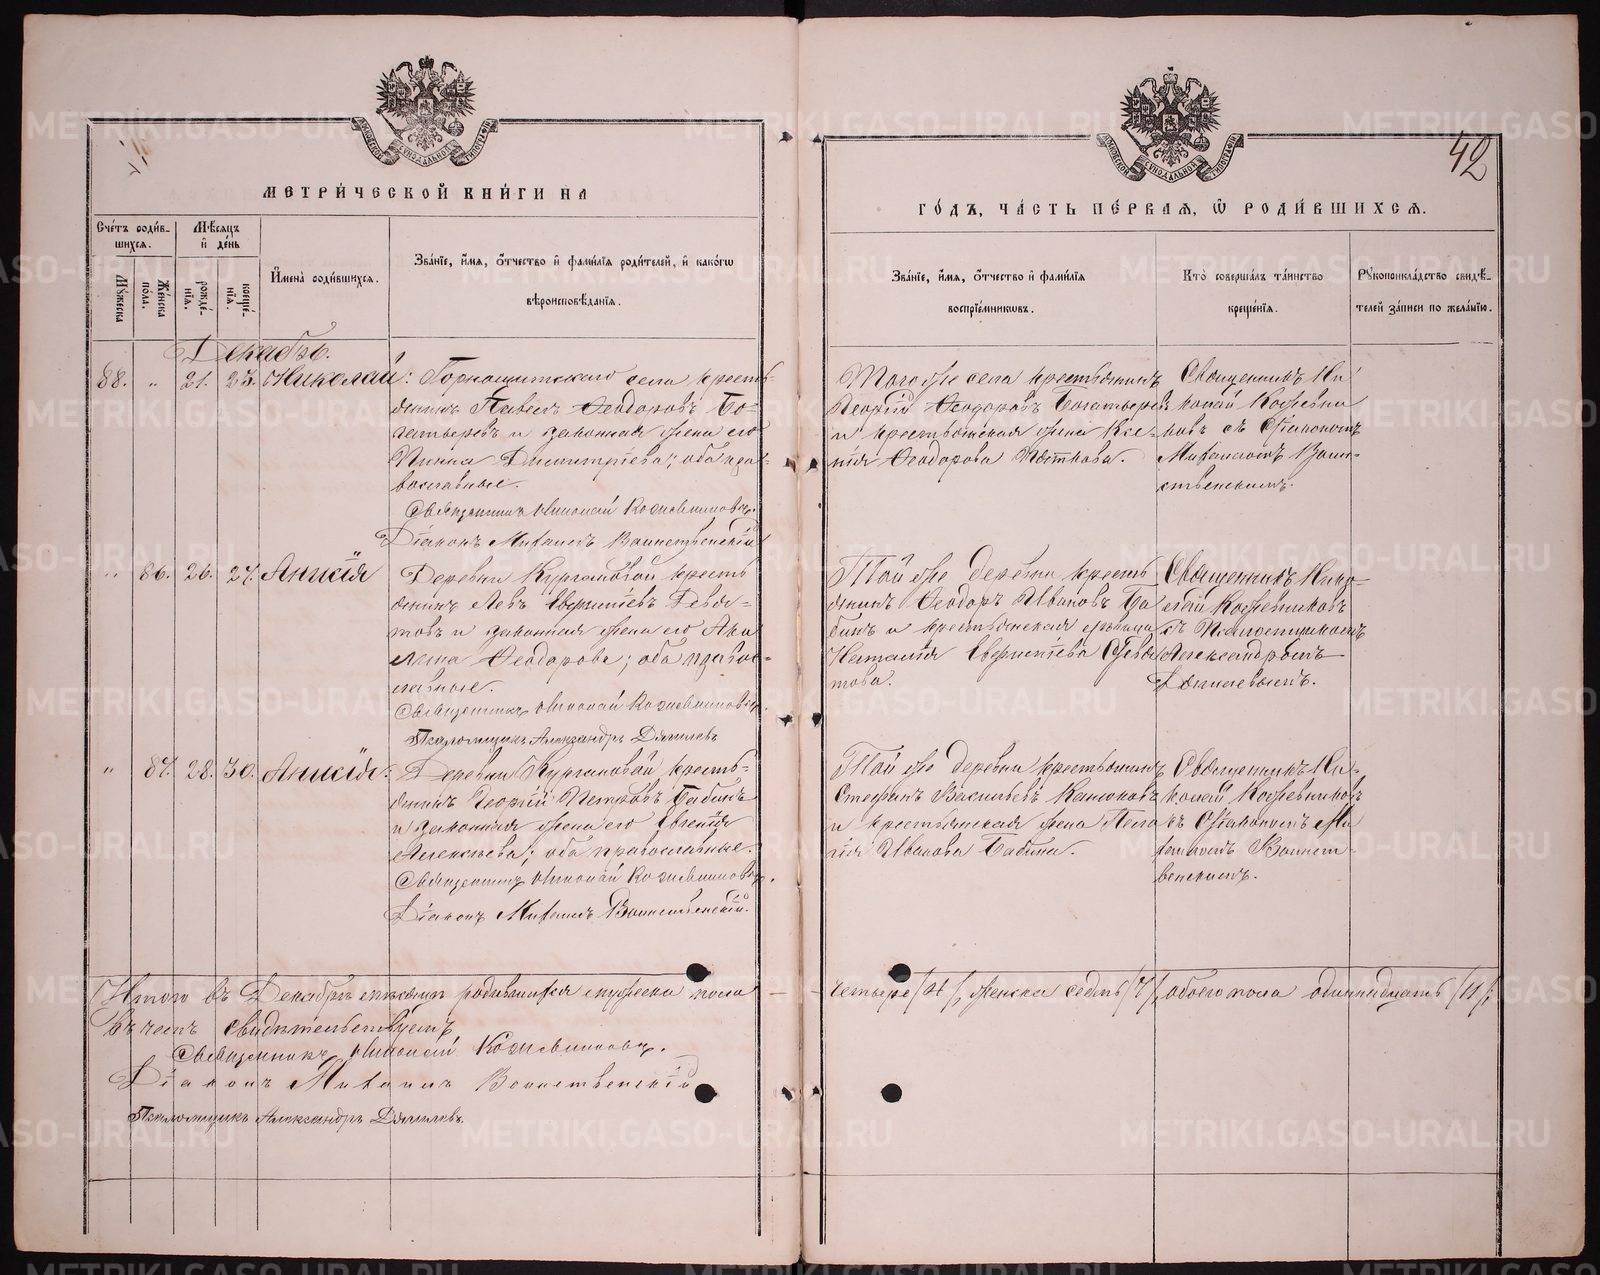 42
МЕТРИ́ЧЕСКОЙ КНИ́ГИ НА
ГО́ДЪ, ЧА́СТЬ ПЕ́РВАЯ, Ѡ РОДИ́ВШИХСЯ.
Сче́тъ роди́в-
шихся.
Му́жеска
Же́нска по́ла.
Мѣ́сяцъ
и де́нь
рожде́-
нїя.
креще́-
нїя.
Имена̀ роди́вшихся.
Зва́нїе, и́мя, ѻ́тчество и фами́лїя роди́телей, и како́гѡ
вѣроисповѣ́данїя.
Зва́нїе, и́мя, ѻ́тчество и фами́лїя
воспрїе́мникѡвъ.
Кто̀ соверша́лъ та́инство
креще́нїя.
Рꙋкоприкла́дство свидѣ́-
телей за́писи по жела́нїю.
Декабрь.
88. „ 21. 23. Николай: Горнощитскаго села кресть-
янинъ Павелъ Ѳеодоровъ Бо-
гатыревъ и законная жена его
Димитріева; оба пра-
вославные.
Священникъ Николай Кожевниковъ.
Діаконъ Михаилъ Воинственскій
Того же села крестьянинъ
Георгій Ѳеодоровъ Богатыревъ
и крестьянская жена Ксе-
нія Ѳеодорова
Священникъ Ни-
колай Кожевни-
ковъ съ Діакономъ
Михаиломъ Воин-
ственскимъ.
„ 86. 26. 27. Анисія
Деревни Кургановой кресть
янинъ Левъ
и законная жена его Аки
лина Ѳеодорова; оба правос-
лавные.
Священникъ Николай Кожевниковъ.
Псаломщикъ Александръ
Той же деревни кресть
янинъ Ѳеодоръ Ивановъ Ба
бинъ и крестьянская дѣвица
Наталія
това.
Священникъ Нико-
лай Кожевниковъ
съ Псаломщикомъ
Александромъ
„ 87. 28. 30. Анисія.
Деревни Кургановой кресть-
янинъ Георгій Петровъ Бабинъ
и законная жена его Евгенія
Алексѣева; оба православные.
Священникъ Николай Кожевниковъ.
Діаконъ Михаилъ Воинственскій.
Той же деревни крестьянинъ
Стефанъ Васильевъ
и крестьянская жена Пела
гія Иванова Бабина.
Священникъ Ни-
колай Кожевниковъ
съ Діакономъ Ми
хаиломъ Воинст-
венскимъ.
Итого въ Декабрѣ мѣсяцѣ родившихся мужеска пола - - четыре /4/, женска семь /7/, обоего пола одиннадцать /11/;
въ чемъ свидѣтельствуемъ
Священникъ Николай Кожевниковъ.
Діаконъ Михаилъ Воинственскій
Псаломщикъ Александръ
METRIKI.GASO-URAL.RU